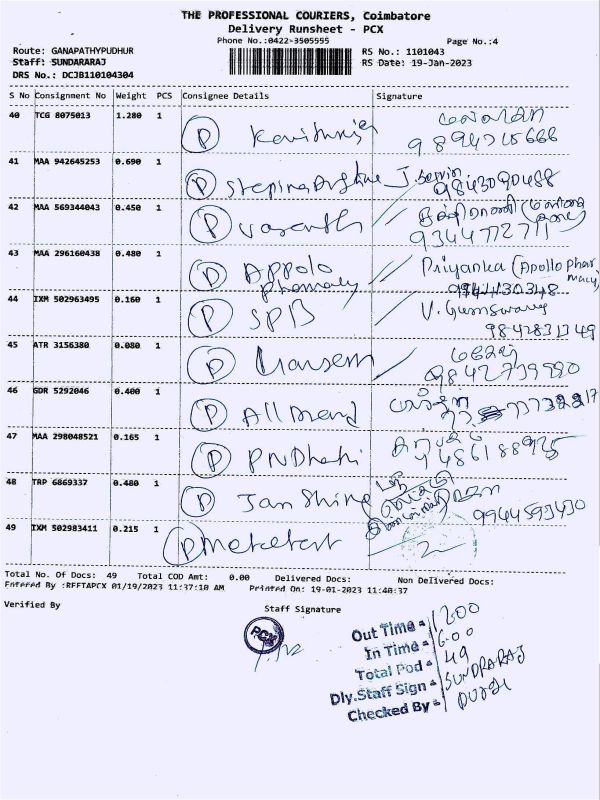 THE PROFESSIONAL COURIERS, Coimbatore
Delivery Runsheet - PCX
Phone No.:0422-3505555
Page No.:4
Route: GANAPATHYPUDHUR
RS No.: 1101043
Staff: SUNDARARAJ
RS Date: 19-Jan-2023
DRS No.: DCJB110104304
S No Consignment No Weight PCS Consignee Details Signature
40 TCG 8075013 1.280 1 P
41 MAA 942645253 0.690 1 P
9843090488
42 MAA 569344043 0.450 1 P Vasanth
9344772711
43 MAA 296160438 0.480 1 P Appolo Pharmacy Priyanka (Apollo Pharmacy)
44 IXM 502963495 0.160 1 P SPB
9842831349
45 ATR 3156380 0.080 1 P
9842739980
46 GDR 5292046 0.400 1 P
47 MAA 298048521 0.165 1 P PNDhahi
48 TRP 6869337 0.480 1 P Jan Shine
9944593430
49 IXM 502983411 0.215 1 P
Total No. Of Docs: 49 Total COD Amt: 0.00 Delivered Docs: Non Delivered Docs:
Entered By :REETAPCX 01/19/2023 11:37:10 AM Printed On: 19-01-2023 11:40:37
Verified By Staff Signature
PCX
Out Time - 1200
In Time - 6.00
Total Pod - 49
Dly.Staff Sign - SUNDRARAJ
Checked By -